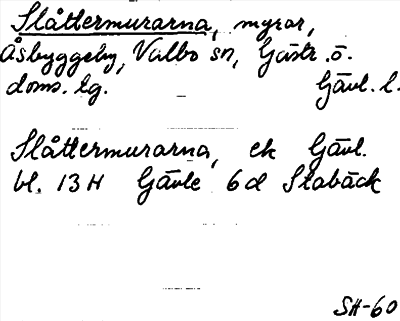 Slåttermurarna, myrar,
Åsbyggeby, Valbo sn, Gästr. ö.
doms. lg. Gävl. l.
Slåttermurarna, ek Gävl.
bl. 13 H Gävle 6 d Stabäck
SH-60